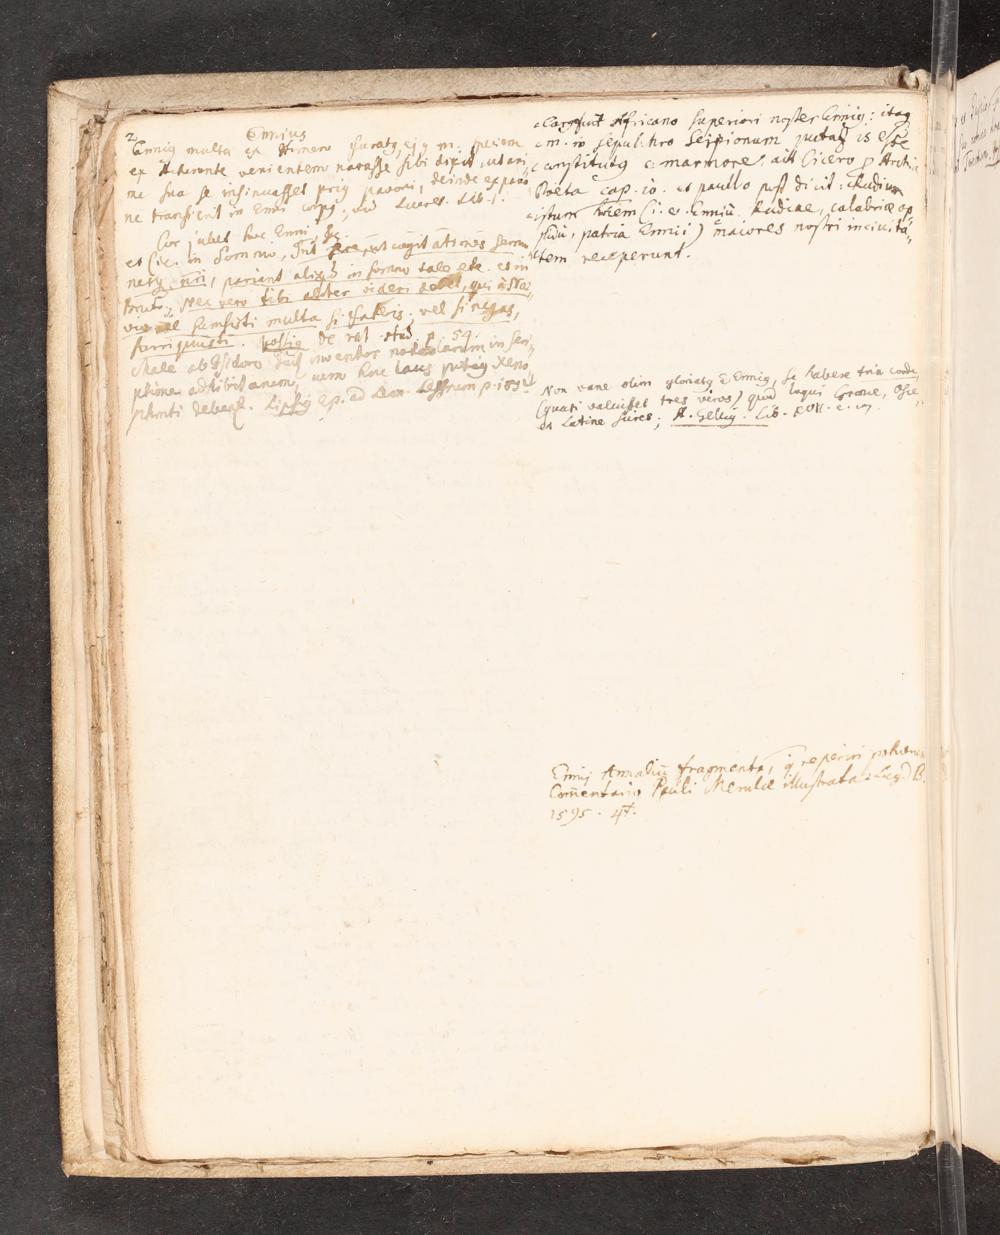 2
Ennius
Ennig multa ex Homero furatg, ej9 n. speciem
ex Acheronte venientem narasse sibi dixit, ut ani
ma sua se insinuasset prig pavoni, deinde ex pavo
ne transierit in Enni corpg, vid Lucret. Lib. 1.
Cor jubet hoc Enni, &c.
et Cic. in Somnio, fere, ut cogitationes sermo
nesq nri, pariant aliqd in somno tale etc. et in
Bruto, Nec vero tibi aliter videri debet, qui a Nae
vio vel sumsisti multa si fateris, vel si negas,
surripuisti. Vossig de rat. stud. p. 54.
Male ab Isidoro inventor notularum in seri
ptione adhibitarum, cum haec laus Xeno
phonti debeatr. Lipsig ep. ad Leon. Lessium p.
Carg fuit Africano superiori noster Ennig: itaq
e m. in sepulchro Scipionum putatr is esse
constitutg e marmore, ait Cicero p Archia
Poeta cap. 10. et paullo post dicit: Rudium
istum hoiem (i. e. Enniū Rudiae, Calabriae op
pidū, patria Ennii) maiores nostri in civita
tem receperunt.
Non vane olim gloriatg e Ennig, se habere tria corda
(quasi valuisset tres viros) quod loqui Graece, Osce
et Latine sciret; A. Gellig. Lib. XVII. c. 17.
Ennij Annaliū fragmenta, q reperiri potuerunt
Com̄entarijs Pauli Merulae illustrata. Lugd B.
1595. 4t.